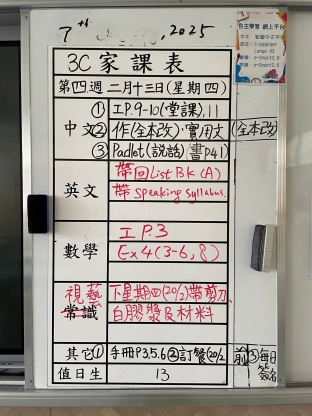 7th ,2025
自主學習 網上平台
3C 家課表
第四週 二月十三日(星期四)
中文
① 工P.9-10(堂課),11
② 作(全本改)、實用文(全本改)
③ Padlet(說話) 書P41
英文
帶回List Bk (A)
帶 Speaking Syllabus
數學
工 P.3
Ex4(3-6, 8)
視藝
常識
下星期四(20/2)帶剪刀、
白膠漿及材料
其它① 手冊P3,5,6 ②訂餐(20/2前) ③每日簽名
值日生 13